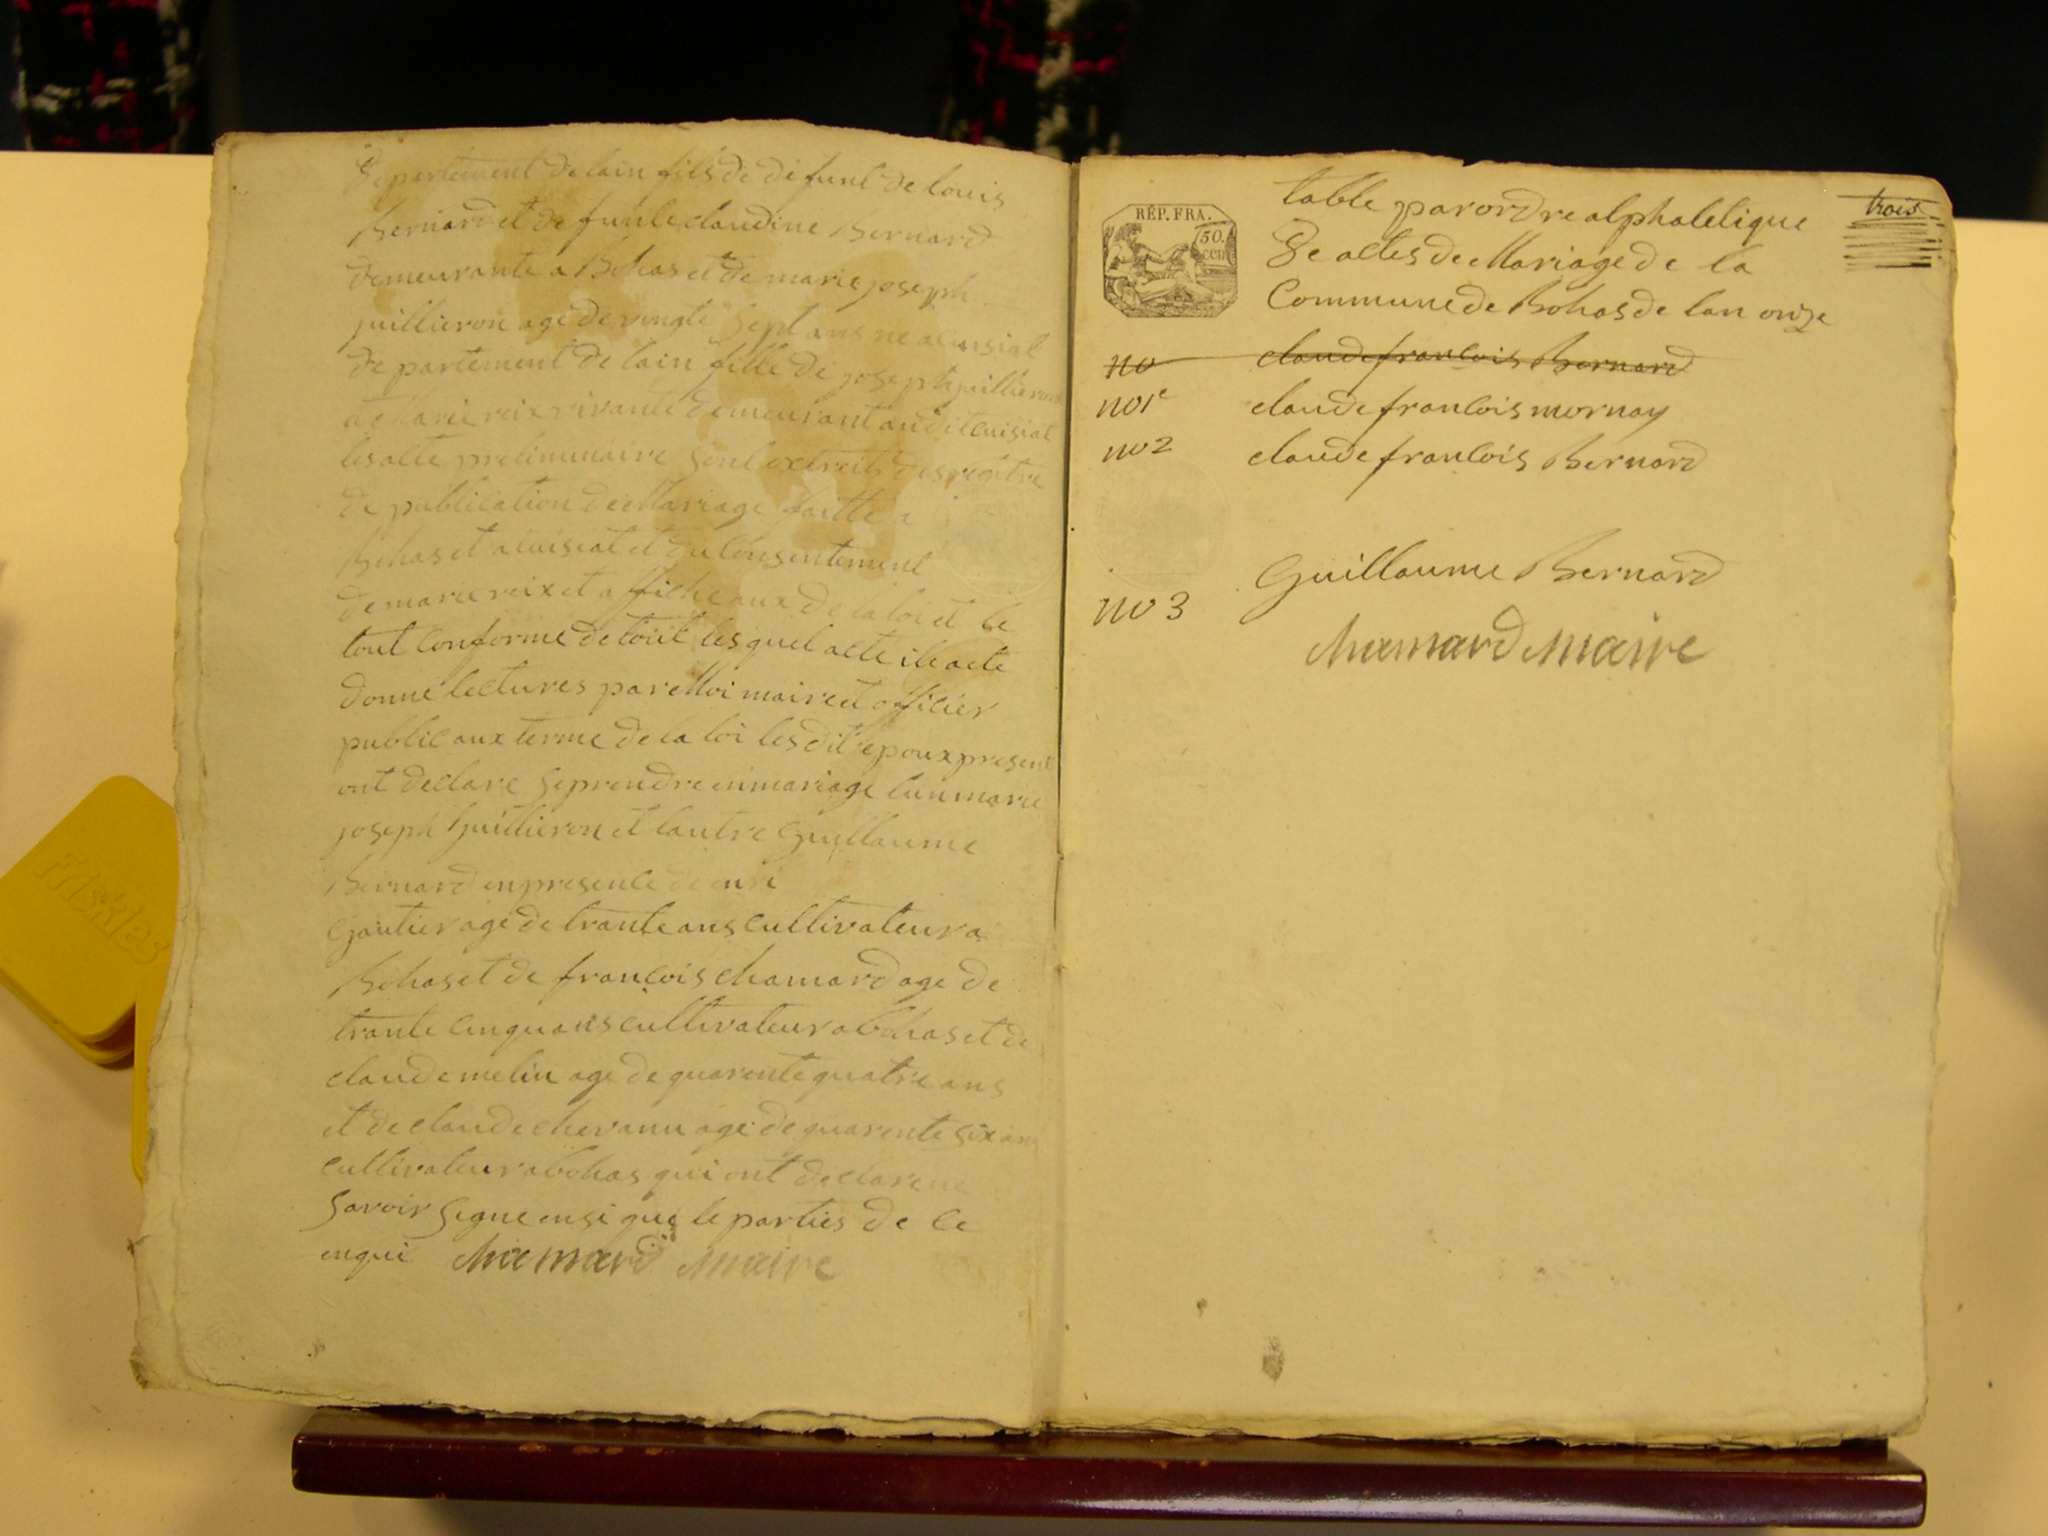 Departement de lain fils de defunt de louis
Bernard et defunte claudine Bernard
demeurante a Bohas et de marie joseph
juillieron age de vingte sept ans ne a cuisiat
departement de lain fille de joseph juillieron
et Marie reix vivante demeurant audit cuisiat
les acte preliminaire sont extraits des registre
de publication de Mariage faitte a
Bohas et a cuisiat et du consentement
de marie reix et affiche aux de la loi et le
tout conforme de tout les quel acte il a ete
donne lectures par Moi maire et officier
public aux terme de la loi les dit epoux present
ont declare se prendre en mariage lun marie
joseph Guillieron et lautre Guillaume
Bernard en presence de
Gautier age de trante ans cultivateur a
Bohas et de francois chamard age de
trante cinq uans cultivateur a bohas et de
claude melin age de quarente quatre ans
et de claude chevanu age de quarente six ans
cultivateur a bohas qui ont declare ne
savoir signe ensi que le parties de ce
enqui chamard Maire
table par ordre alphaletique
trois
De actes de Mariage de la
Commune de Bohas de lan onze
RÉP. FRA.
50.
CEN
no claude francois Bernard
no 1e claude francois mornay
no 2 claude francois Bernard
no 3 Guillaume Bernard
chamard Maire
Friskies